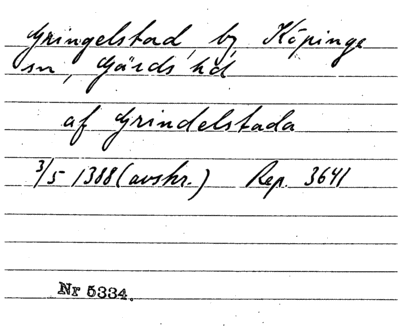 Gringelstad, by, Köpinge
sn, Gärds hd
af Grindelstada
3/5 1388 (avskr.) Rep. 3641
Nr 5334.